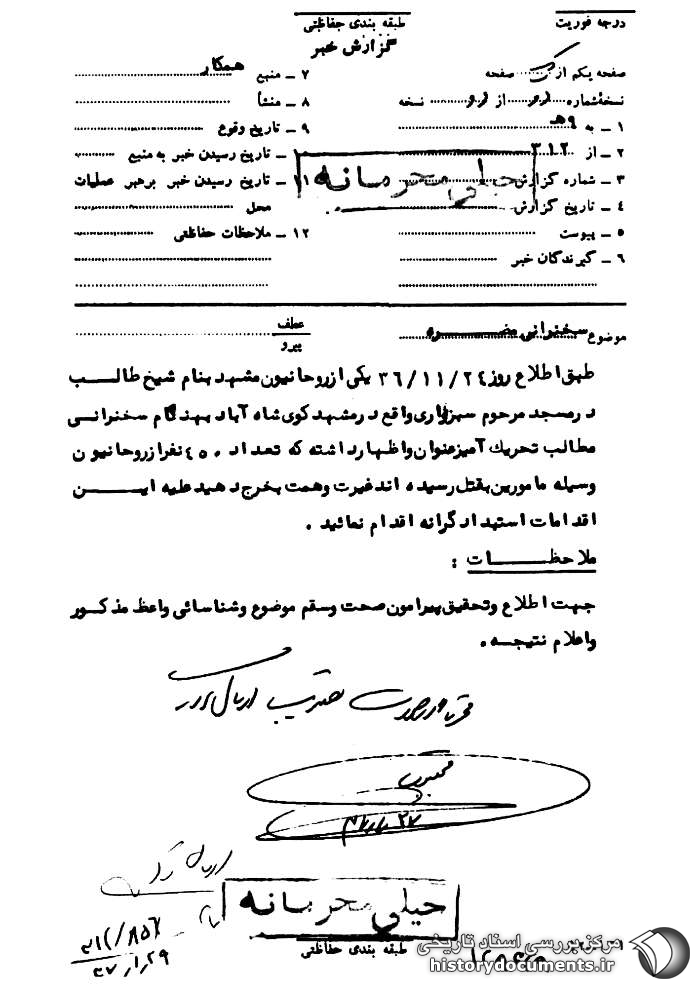 درجه فوریت
طبقه بندی حفاظتی
گزارش خبر
صفحه یکم از یک صفحه
نسخهٔ شماره ......... از ......... نسخه
۱ ـ به ۹هـ
۲ ـ از ۳۱۲
۳ ـ شماره گزارش
۴ ـ تاریخ گزارش
۵ ـ پیوست
۶ ـ گیرندگان خبر
۷ ـ منبع همکار
۸ ـ منشأ
۹ ـ تاریخ وقوع
۱۰ ـ تاریخ رسیدن خبر به منبع
۱۱ ـ تاریخ رسیدن خبر برهبر عملیات
محل
۱۲ ـ ملاحظات حفاظتی
خیلی محرمانه
موضوع سخنرانی مضره
عطف
پیرو
طبق اطلاع روز ۳۶/۱۱/۲۴ یکی از روحانیون مشهد بنام شیخ طالب
در مسجد مرحوم سبزواری واقع در مشهد کوی شاه آباد بهنگام سخنرانی
مطالب تحریک آمیز عنوان و اظهار داشته که تعداد ۴۵۰ نفر از روحانیون
وسیله مامورین بقتل رسیده اند غیرت و همت بخرج دهید علیه این
اقدامات استبدادگرانه اقدام نمائید .
ملاحظات :
جهت اطلاع و تحقیق پیرامون صحت و سقم موضوع و شناسائی واعظ مذکور
و اعلام نتیجه .
خیلی محرمانه
طبقه بندی حفاظتی
مرکز بررسی اسناد تاریخی
historydocuments.ir